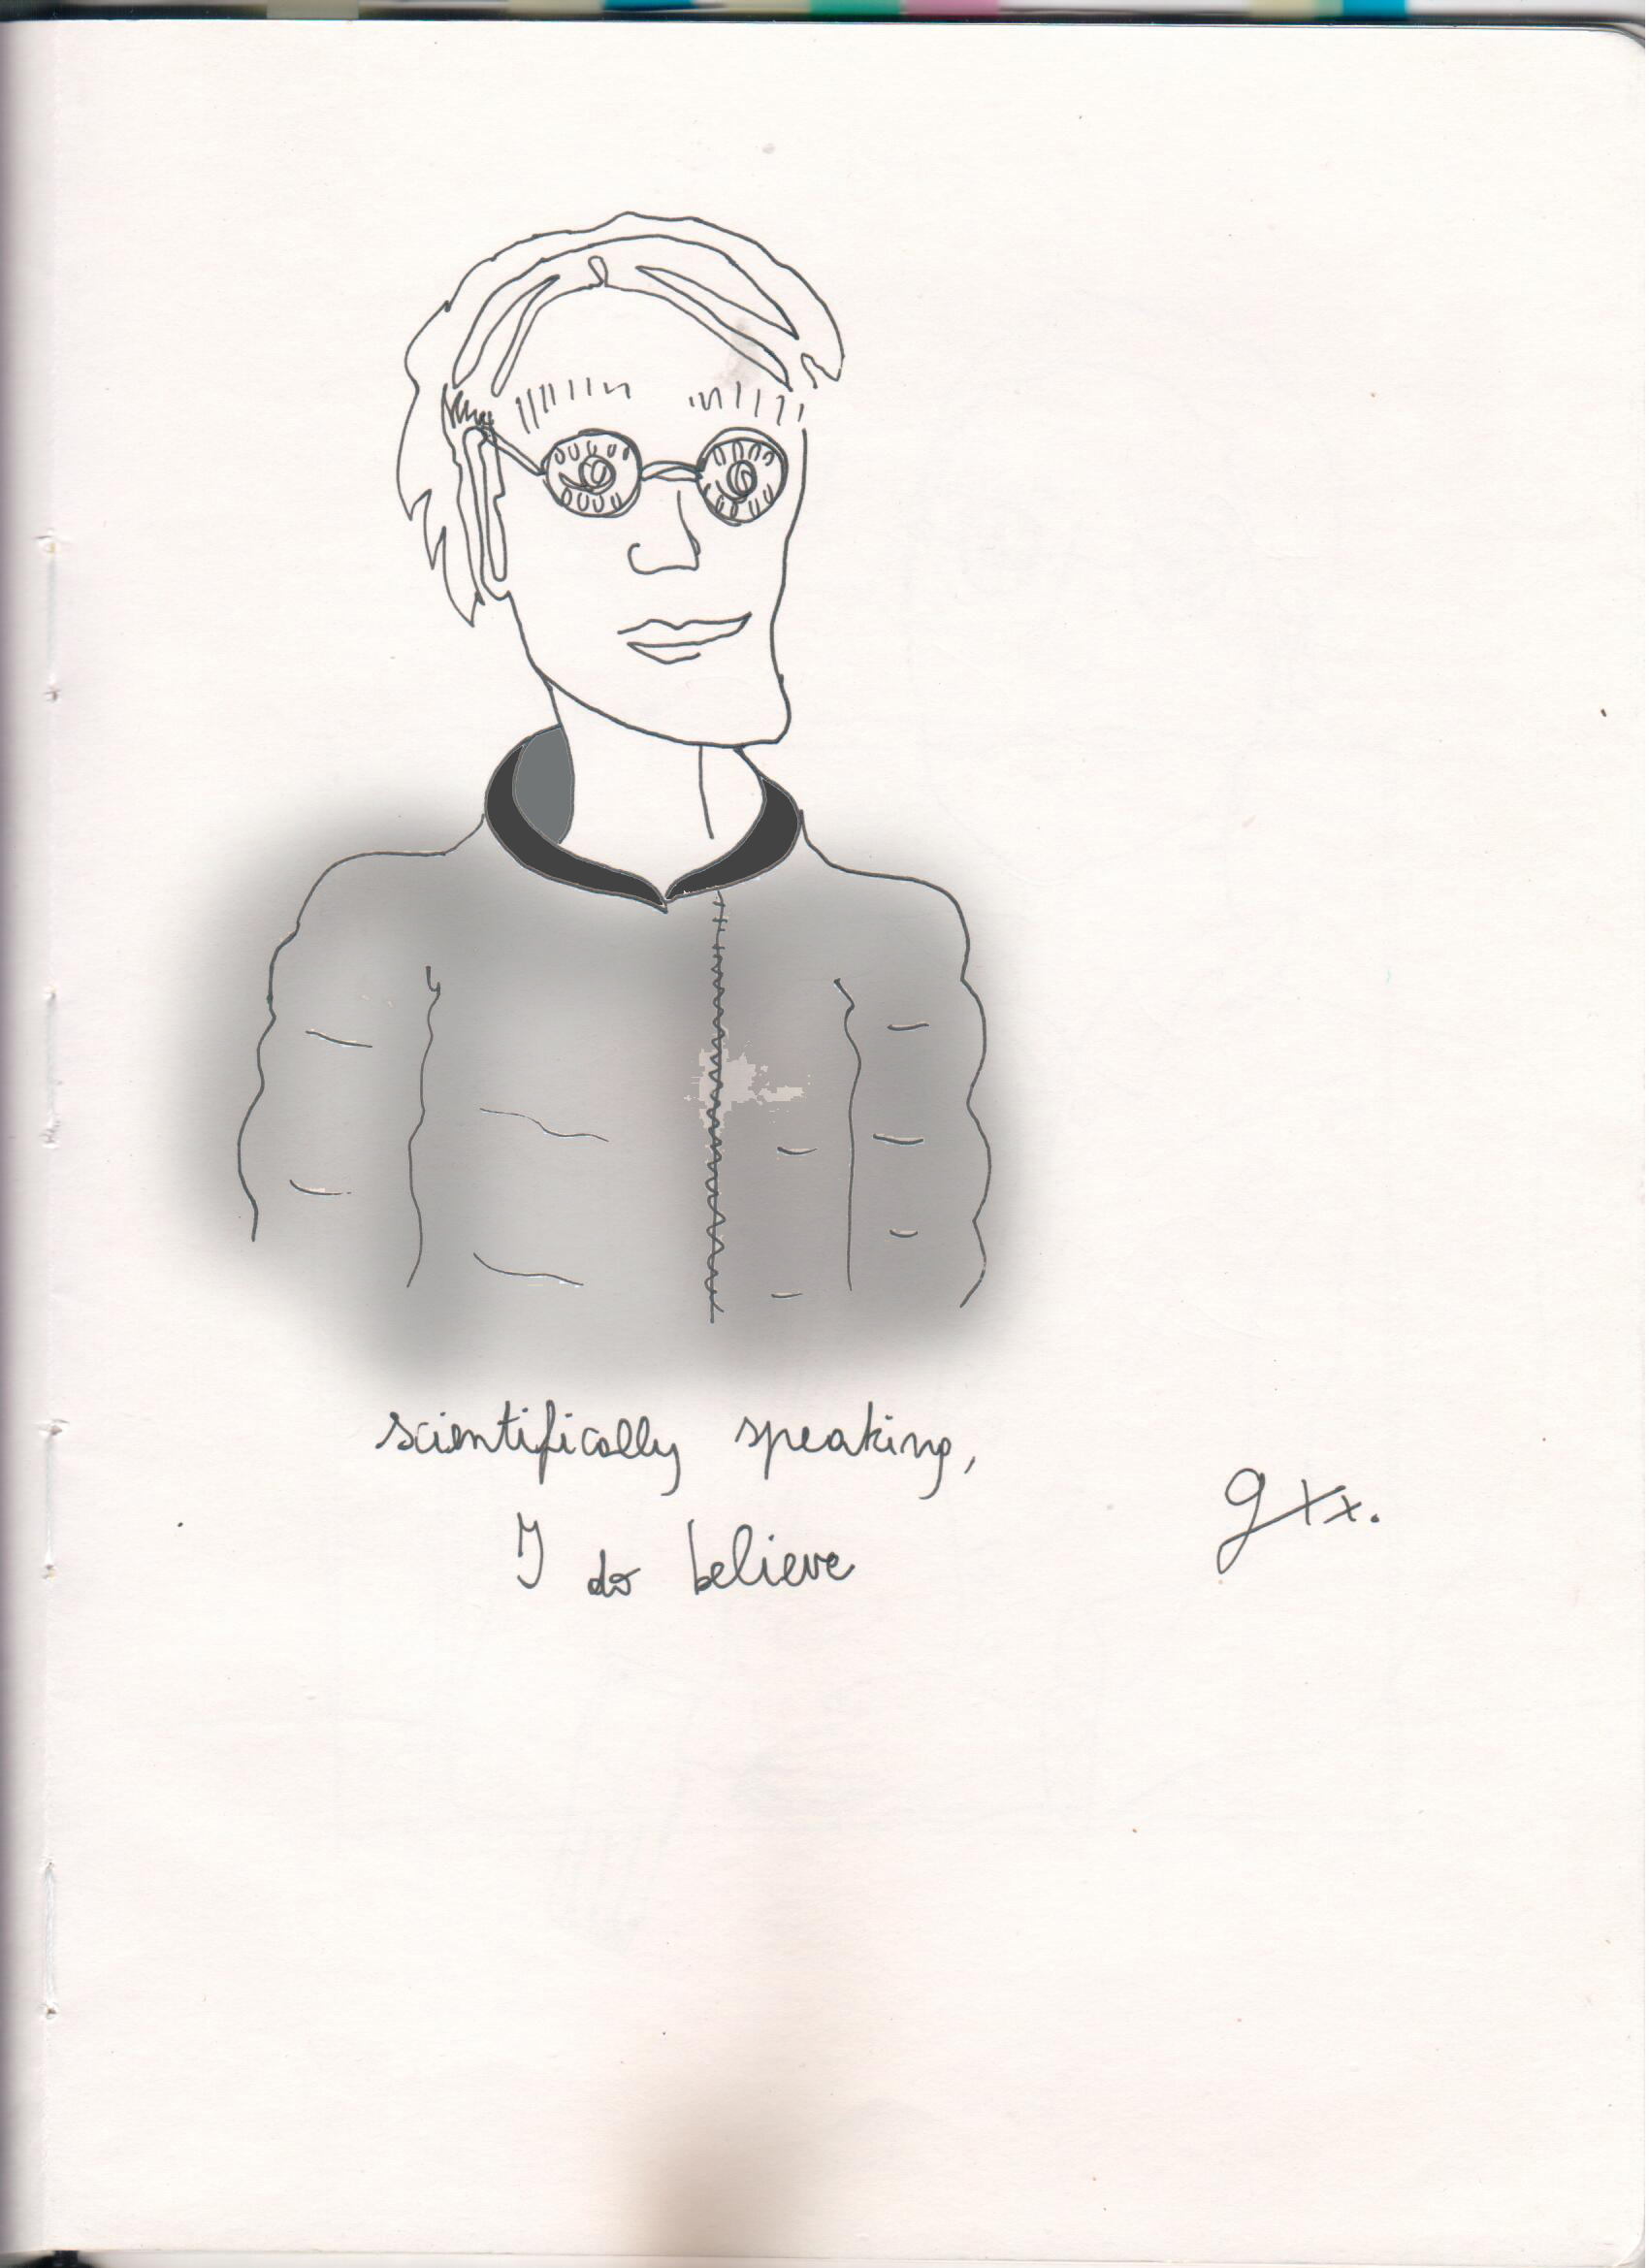 scientifically speaking,
I do believe
gxx.